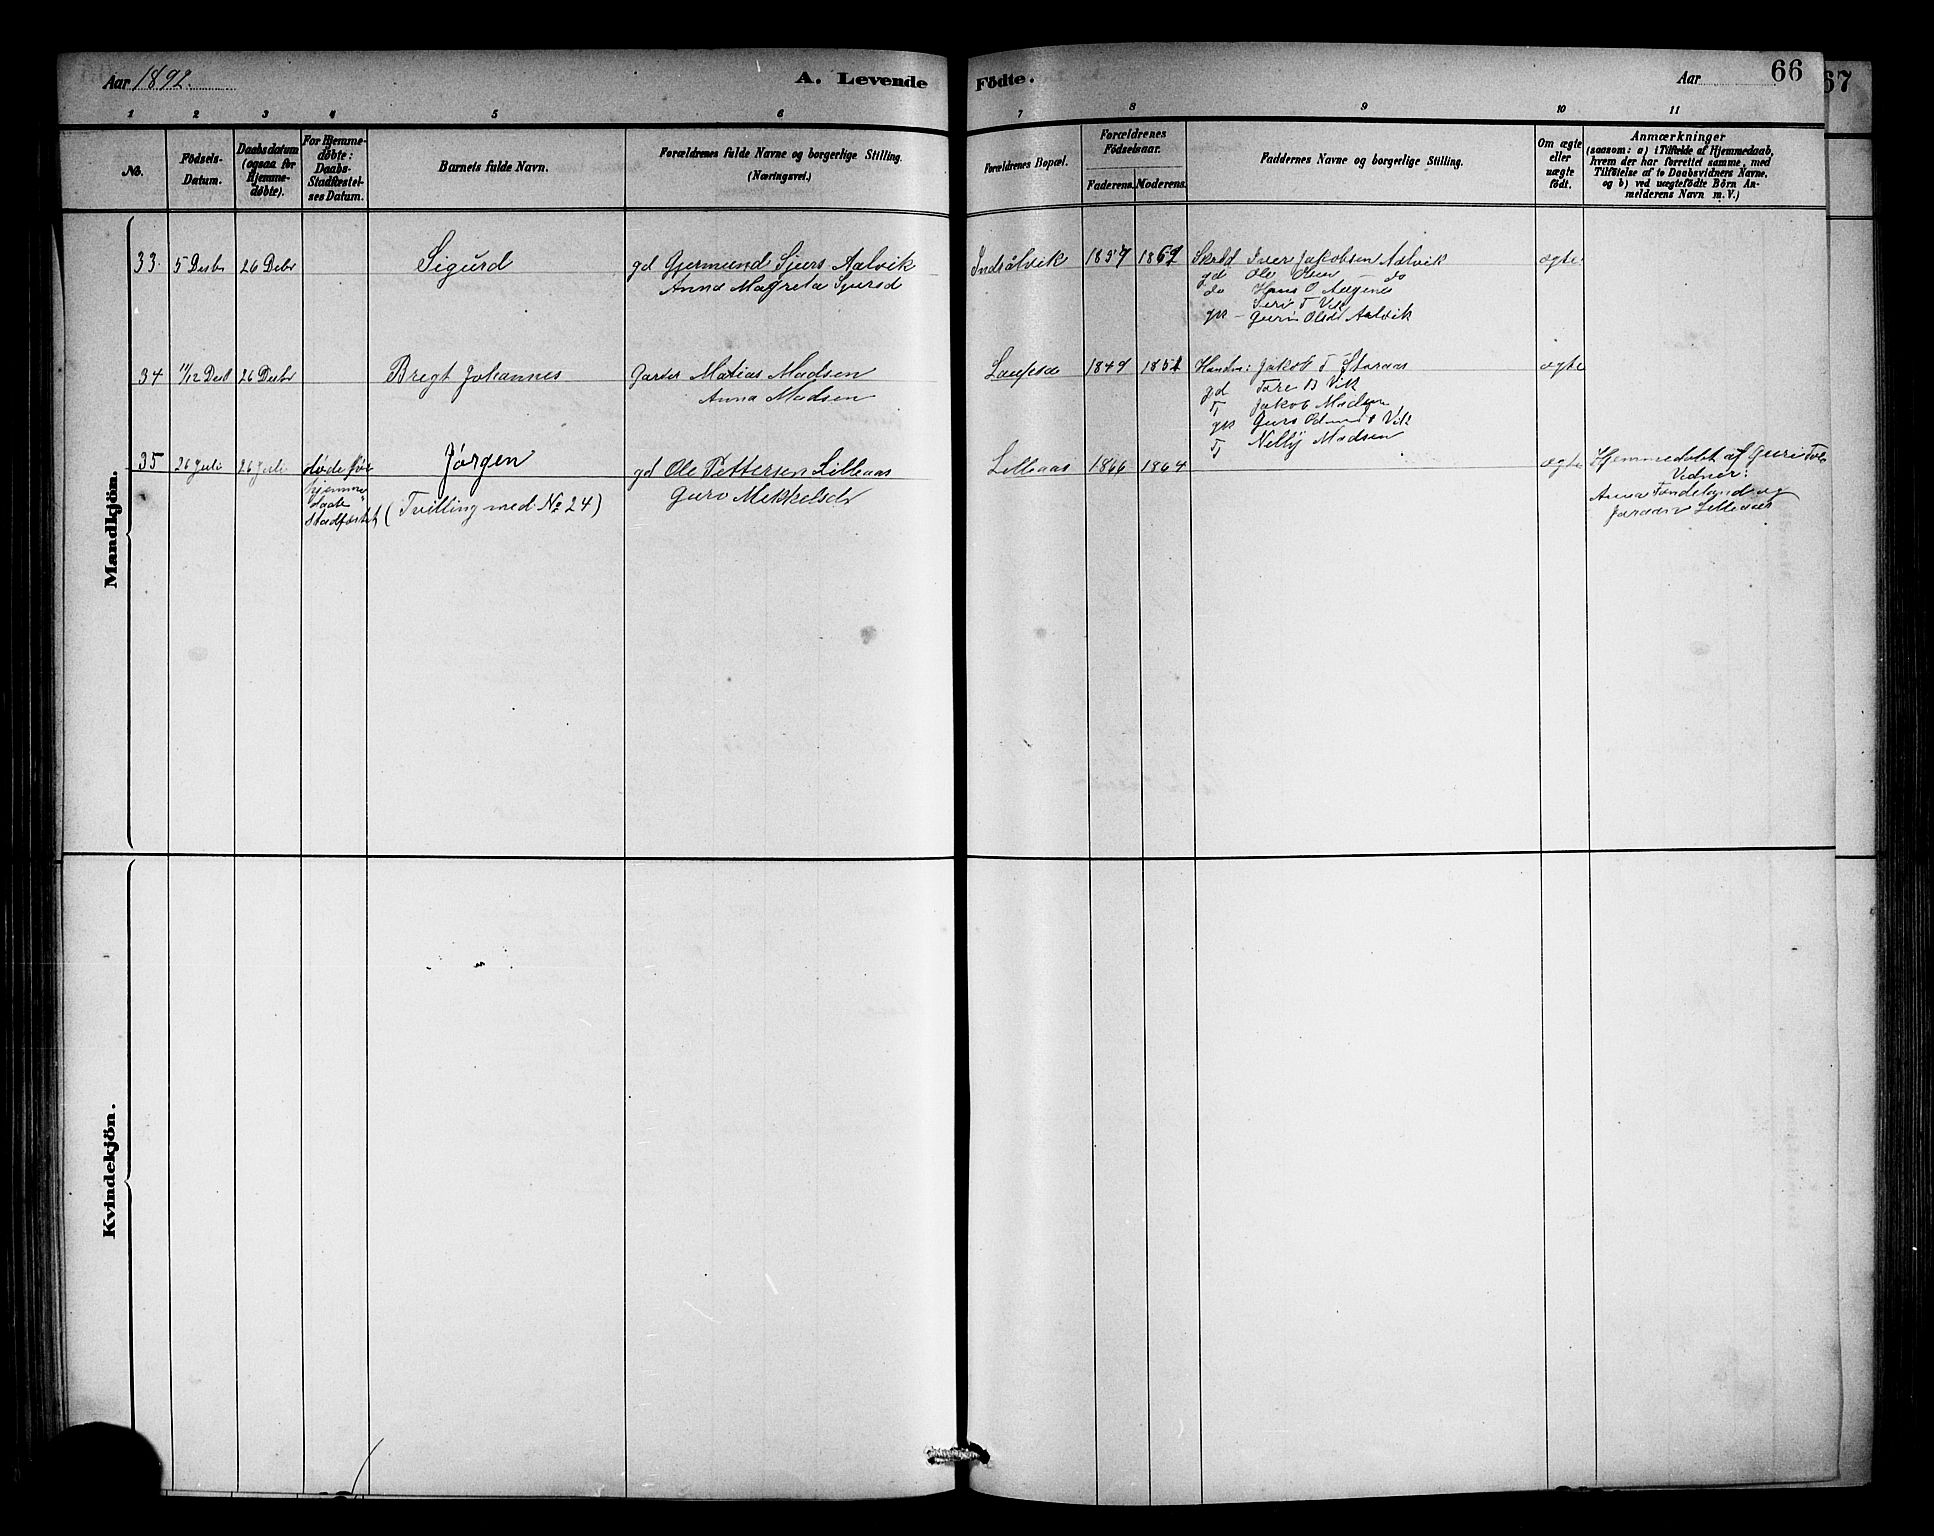 Aar 1892.
A. Levende Födte.
Aar
66
67
1 2 3 4 5 6 7 8 9 10 11
No.
Födsels-Datum.
Daabsdatum (ogsaa for Hjemmedøbte).
For Hjemmedøbte: Daabs-Stadfæstelses Datum.
Barnets fulde Navn.
Forældrenes fulde Navne og borgerlige Stilling.
(Næringsvei.)
Forældrenes Bopæl.
Forældrenes Födselsaar.
Faderens. Moderens.
Faddernes Navne og borgerlige Stilling.
Om ægte eller uægte födt.
Anmærkninger
(saasom: a) i Tilfælde af Hjemmedaab,
hvem der har forrettet samme, med
Tilföielse af to Daabsvidners Navne,
og b) ved uægtefödte Börn An-
melderens Navn m. V.)
Mandkjön.
33. 5 Desbr 26 Debr Sigurd gd Gjermund Sjurs Aalvik Indrålvik 1857 1862 Iver Jakobsen Aalvik ægte
Anna Magreta Sjursd gd Ole Olsen - do
do Hans O
T Vik
Guri Olsd Aalvik
34 11/12 Desb 26 Desbr Bregt Johannes Matias Madsen 1849 1851 Jakob T Storaas ægte
Anna Madsen gd Tore B Vik
T Jakob Madsen
Vik
T Nelly Madsen
35 26 Juli 26 Juli døde før Jørgen gd Ole Pettersen Lilleaas Lilleaas 1866 1864 ægte Hjemmedøbt af Guri
hjemme daab Stadfæstet (Tvilling med No 24) Guro Mikkelsdr Vidner:
Anna og
Lilleaas
Kvindekjön.